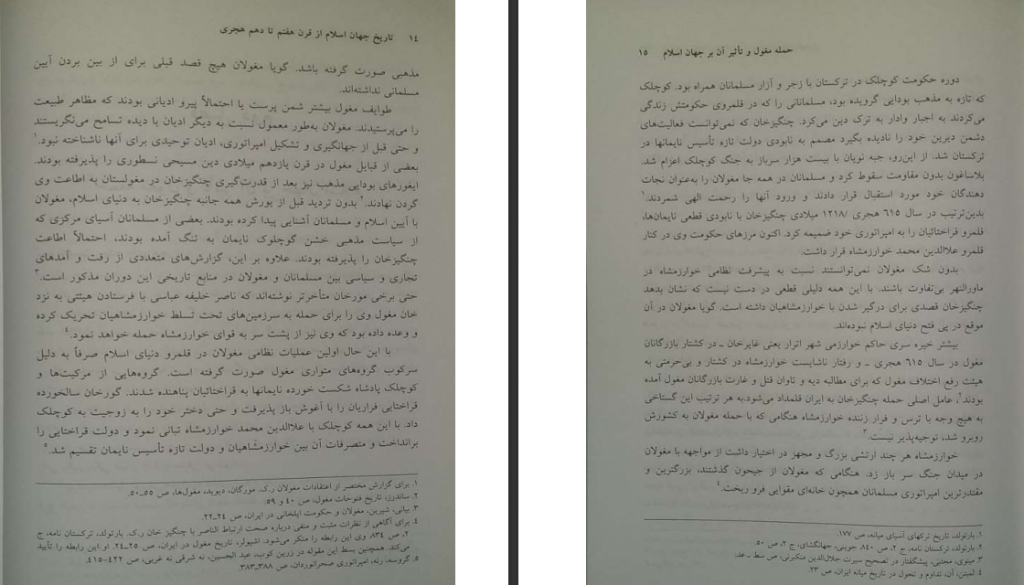 ۱۴ تاریخ جهان اسلام از قرن هفتم تا دهم هجری
مذهبی صورت گرفته باشد. گویا مغولان هیچ قصد قبلی برای از بین بردن آیین
مسلمانی نداشته‌اند.
طوایف مغول بیشتر شمن پرست یا احتمالاً پیرو ادیانی بودند که مظاهر طبیعت
را می‌پرستیدند. مغولان به‌طور معمول نسبت به دیگر ادیان با دیده تسامح می‌نگریستند
و حتی قبل از جهانگیری و تشکیل امپراتوری، ادیان توحیدی برای آنها ناشناخته نبود.۱
بعضی از قبایل مغول در قرن یازدهم میلادی دین مسیحی نسطوری را پذیرفته بودند.
ایغورهای بودایی مذهب نیز بعد از قدرت‌گیری چنگیزخان در مغولستان به اطاعت وی
گردن نهادند.۲ بدون تردید قبل از یورش همه جانبه چنگیزخان به دنیای اسلام، مغولان
با آیین اسلام و مسلمانان آشنایی پیدا کرده بودند. بعضی از مسلمانان آسیای مرکزی که
از سیاست مذهبی خشن کوچلوک نایمان به تنگ آمده بودند، احتمالاً اطاعت
چنگیزخان را پذیرفته بودند. علاوه بر این، گزارش‌های متعددی از رفت و آمدهای
تجاری و سیاسی بین مسلمانان و مغولان در منابع تاریخی این دوران مذکور است.۳
حتی برخی مورخان متأخرتر نوشته‌اند که ناصر خلیفه عباسی با فرستادن هیئتی به نزد
خان مغول وی را برای حمله به سرزمین‌های تحت تسلط خوارزمشاهیان تحریک کرده
و وعده داده بود که وی نیز از پشت سر به قوای خوارزمشاه حمله خواهد نمود.۴
با این حال اولین عملیات نظامی مغولان در قلمرو دنیای اسلام صرفاً به دلیل
سرکوب گروه‌های متواری مغول صورت گرفته است. گروه‌هایی از مرکیت‌ها و
کوچلک پادشاه شکست خورده نایمانها به قراختائیان پناهنده شدند. گورخان سالخورده
قراختایی فراریان را با آغوش باز پذیرفت و حتی دختر خود را به زوجیت به کوچلک
داد. با این همه کوچلک با علاالدین محمد خوارزمشاه تبانی نمود و دولت قراختایی را
برانداخت و متصرفات آن بین خوارزمشاهیان و دولت تازه تأسیس نایمان تقسیم شد.۵
۱. برای گزارش مختصر از اعتقادات مغولان ر.ک. مورگان، دیوید، مغول‌ها، ص ۵۵ـ۵۰.
۲. ساندرز، تاریخ فتوحات مغول، ص ۴۰ و ۵۹.
۳. بیانی، شیرین، مغولان و حکومت ایلخانی در ایران، ص ۲۴ـ۲۲.
۴. برای آگاهی از نظرات مثبت و منفی درباره صحت ارتباط الناصر با چنگیز خان ر.ک. بارتولد، ترکستان نامه، ج
۲، ص ۸۳۴. وی این رابطه را منکر می‌شود. اشپولر، تاریخ مغول در ایران، ص ۲۵ـ۲۴. او این رابطه را تأیید
می‌کند. همچنین بسط این مقوله در زرین کوب، عبد الحسین، نه شرقی نه غربی، ص ۴۲۲ـ۴۱۵.
۵. گروسه، رنه، امپراتوری صحرانوردان، ص ۳۸۸ـ۳۸۳.
حمله مغول و تأثیر آن بر جهان اسلام ۱۵
دوره حکومت کوچلک در ترکستان با زجر و آزار مسلمانان همراه بود. کوچلک
که تازه به مذهب بودایی گرویده بود، مسلمانانی را که در قلمروی حکومتش زندگی
می‌کردند به اجبار وادار به ترک دین می‌کرد. چنگیزخان که نمی‌توانست فعالیت‌های
دشمن دیرین خود را نادیده بگیرد مصمم به نابودی دولت تازه تأسیس نایمانها در
ترکستان شد. از این‌رو، جبه نویان با بیست هزار سرباز به جنگ کوچلک اعزام شد.
بلاساغون بدون مقاومت سقوط کرد و مسلمانان در همه جا مغولان را به‌عنوان نجات
دهندگان خود مورد استقبال قرار دادند و ورود آنها را رحمت الهی شمردند.۱
بدین‌ترتیب در سال ۶۱۵ هجری /۱۲۱۸ میلادی چنگیزخان با نابودی قطعی نایمان‌ها،
قلمرو قراختائیان را به امپراتوری خود ضمیمه کرد. اکنون مرزهای حکومت وی در کنار
قلمرو علاالدین محمد خوارزمشاه قرار داشت.
بدون شک مغولان نمی‌توانستند نسبت به پیشرفت نظامی خوارزمشاه در
ماورالنهر بی‌تفاوت باشند. با این همه دلیلی قطعی در دست نیست که نشان بدهد
چنگیزخان قصدی برای درگیر شدن با خوارزمشاهیان داشته است. گویا مغولان در آن
موقع در پی فتح دنیای اسلام نبوده‌اند.
بیشتر خیره سری حاکم خوارزمی شهر اترار یعنی غایرخان ـ در کشتار بازرگانان
مغول در سال ۶۱۵ هجری ـ و رفتار ناشایست خوارزمشاه در کشتار و بی‌حرمتی به
هیئت رفع اختلاف مغول که برای مطالبه دیه و تاوان قتل و غارت بازرگانان مغول آمده
بودند۲، عامل اصلی حمله چنگیزخان به ایران قلمداد می‌شود.به هر ترتیب این گستاخی
به هیچ وجه با ترس و فرار زننده خوارزمشاه هنگامی که با حمله مغولان به کشورش
روبرو شد، توجیه‌پذیر نیست.۳
خوارزمشاه هر چند ارتشی بزرگ و مجهز در اختیار داشت از مواجهه با مغولان
در میدان جنگ سر باز زد. هنگامی که مغولان از جیحون گذشتند، بزرگترین و
مقتدرترین امپراتوری مسلمانان همچون خانه‌ای مقوایی فرو ریخت.۴
۱. بارتولد، تاریخ ترکهای آسیای میانه، ص ۱۷۷.
۲. بارتولد، ترکستان نامه، ج ۲، ص ۸۴۰. جوینی، جهانگشای، ج ۲، ص ۵۰.
۳. مینوی، مجتبی، پیشگفتار در تصحیح سیرت جلال‌الدین منکبرنی، ص سط ـ عد.
۴. لمبتن، آن، تداوم و تحول در تاریخ میانه ایران، ص ۲۳.